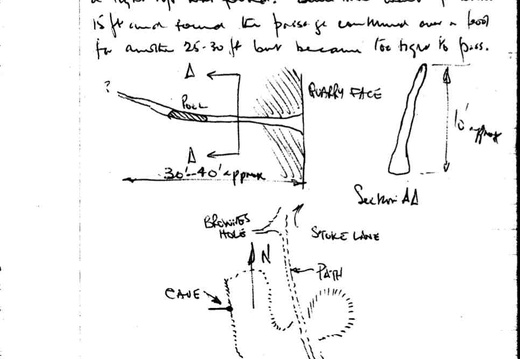 15 ft and found the passage continued over a pool
for another 25-30 ft but became too tight to pass.
?
A
POOL
QUARRY FACE
A
30'-40' approx
10' approx
Section AA
BROWNES
HOLE
STOKE LANE
N
PATH
CAVE